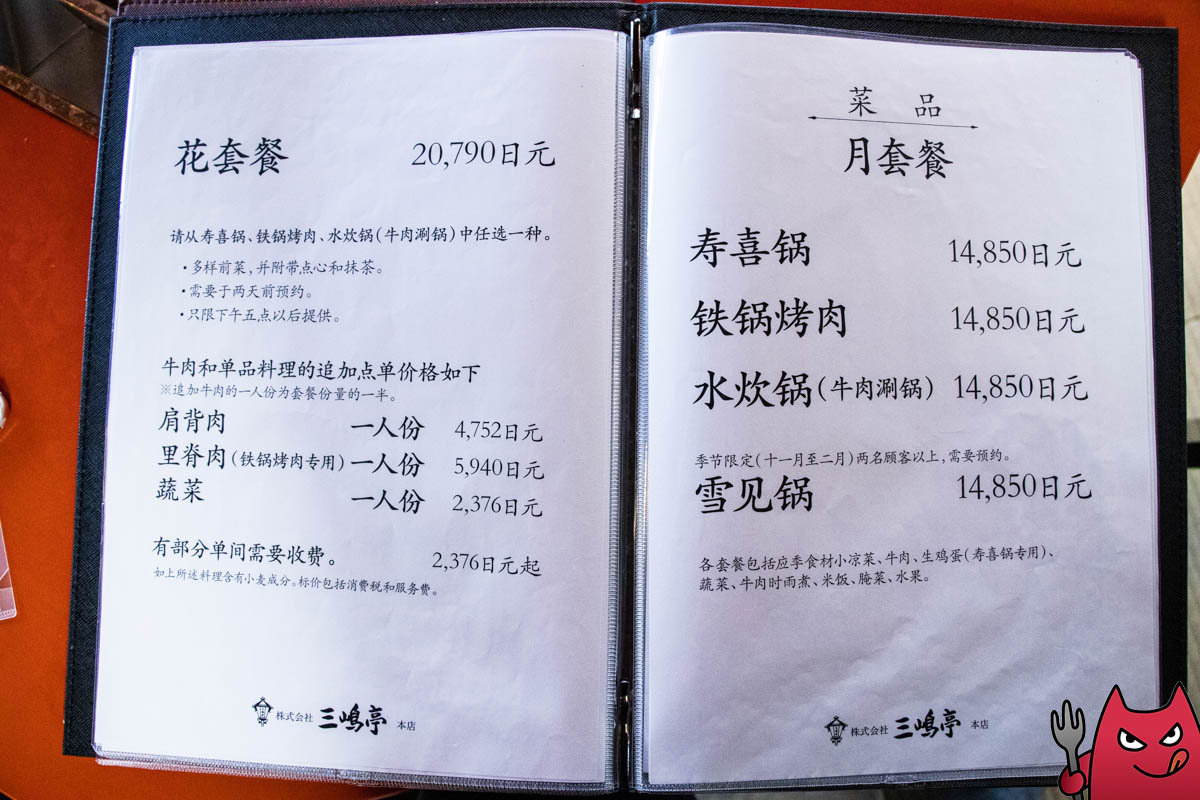 花套餐 20,790日元
请从寿喜锅、铁锅烤肉、水炊锅(牛肉涮锅)中任选一种。
・多样前菜,并附带点心和抹茶。
・需要于两天前预约。
・只限下午五点以后提供。
牛肉和单品料理的追加点单价格如下
※追加牛肉的一人份为套餐份量的一半。
肩背肉 一人份 4,752日元
里脊肉(铁锅烤肉专用) 一人份 5,940日元
蔬菜 一人份 2,376日元
有部分单间需要收费。 2,376日元起
如上所述料理含有小麦成分。标价包括消费税和服务费。
株式会社 三嶋亭 本店
菜 品
月套餐
寿喜锅 14,850日元
铁锅烤肉 14,850日元
水炊锅(牛肉涮锅) 14,850日元
季节限定(十一月至二月)两名顾客以上,需要预约。
雪见锅 14,850日元
各套餐包括应季食材小凉菜、牛肉、生鸡蛋(寿喜锅专用)、
蔬菜、牛肉时雨煮、米饭、腌菜、水果。
株式会社 三嶋亭 本店